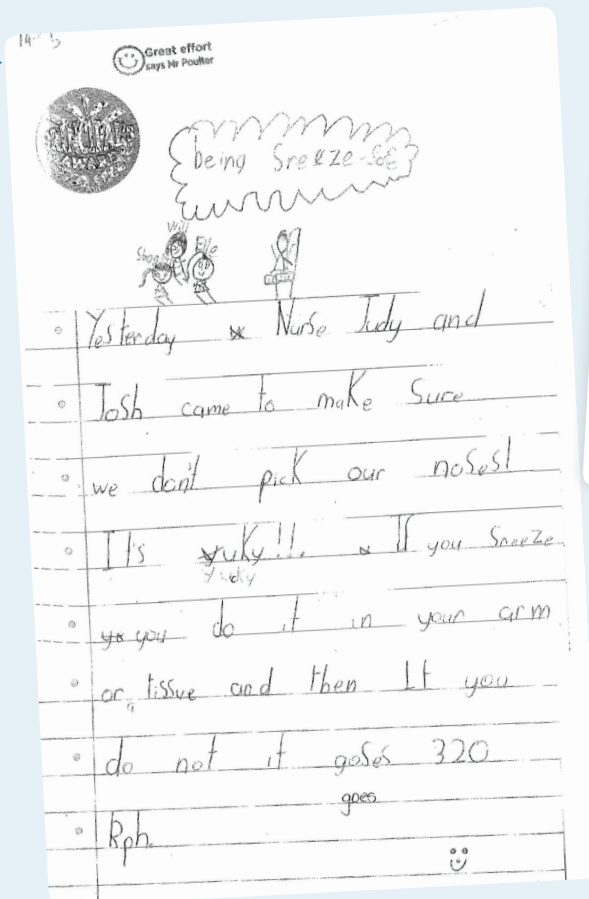 Great effort
says Mr Poulter
being Sneeze-safe
Will
Ella
Yesterday Nurse Judy and
Josh came to make Sure
we don't pick our noses!
It's yuky!!. If you Sneeze
yucky
you do it in your arm
or a tissue and then If you
do not it goses 320
goes
kph.